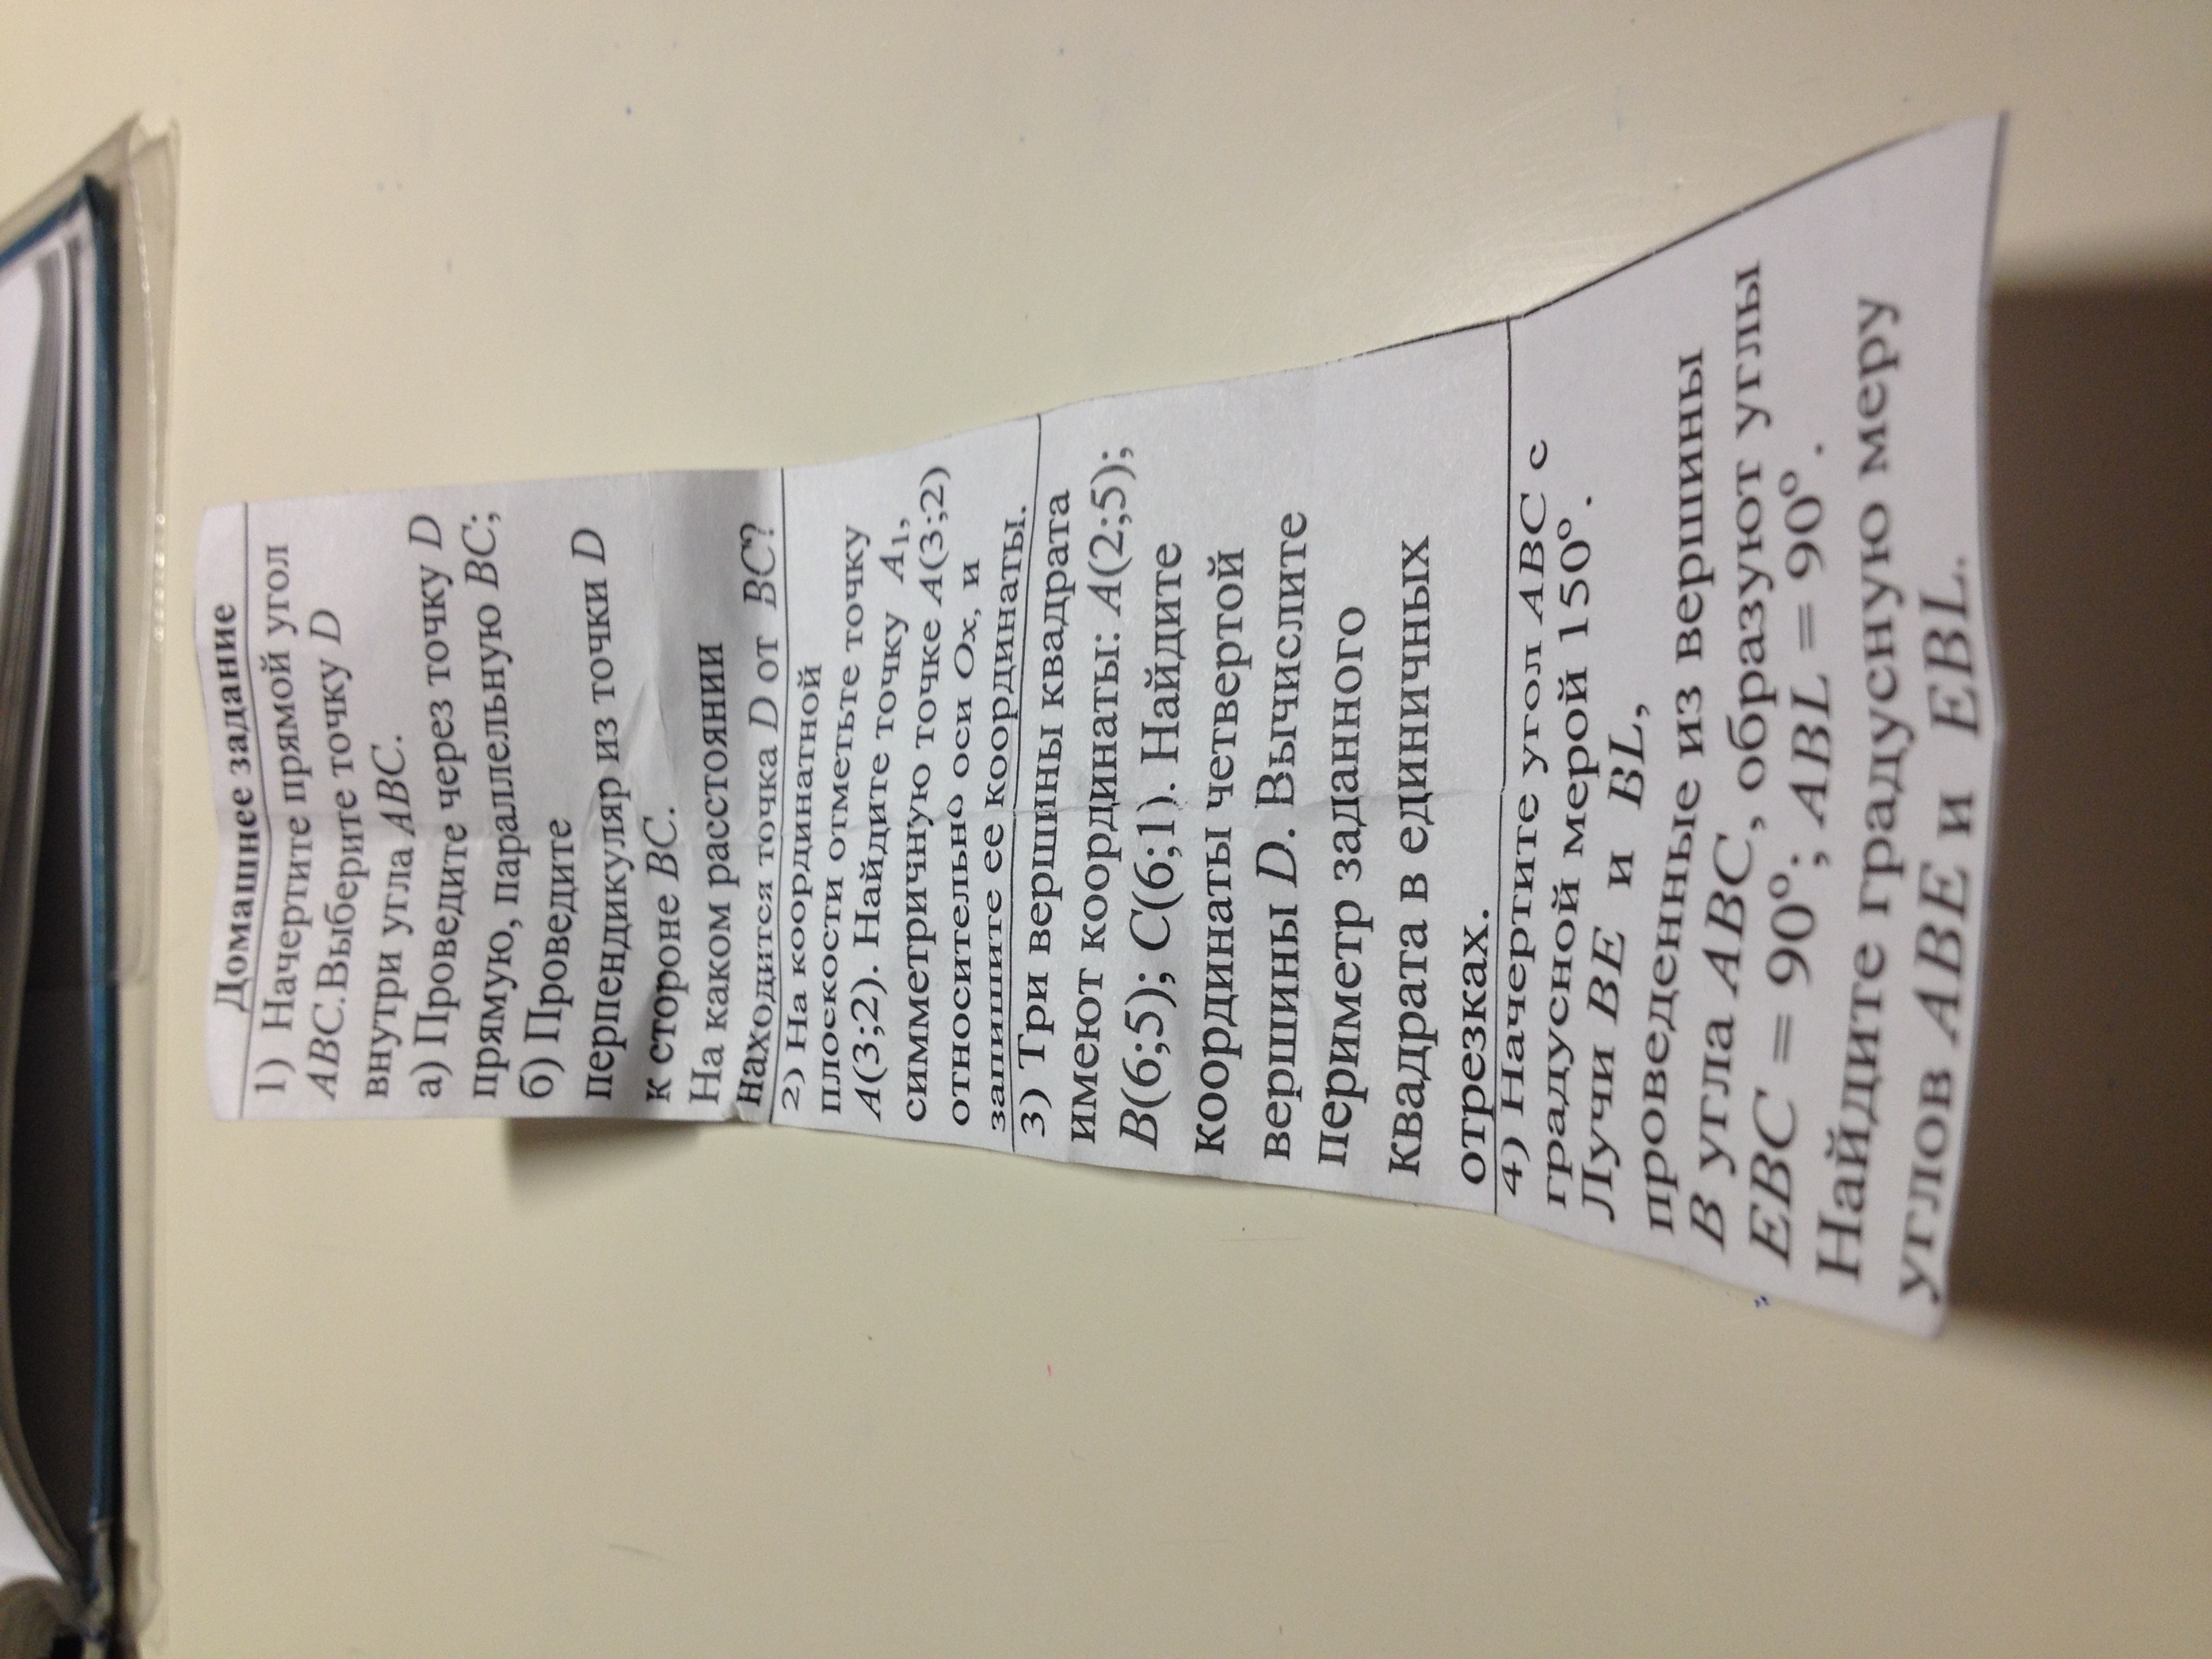 Домашнее задание
1) Начертите прямой угол
ABC.Выберите точку D
внутри угла ABC.
а) Проведите через точку D
прямую, параллельную BC;
б) Проведите
перпендикуляр из точки D
к стороне BC.
На каком расстоянии
находится точка D от BC?
2) На координатной
плоскости отметьте точку
A(3;2). Найдите точку A₁,
симметричную точке A(3;2)
относительно оси Ox, и
запишите ее координаты.
3) Три вершины квадрата
имеют координаты: A(2;5);
B(6;5); C(6;1). Найдите
координаты четвертой
вершины D. Вычислите
периметр заданного
квадрата в единичных
отрезках.
4) Начертите угол ABC с
градусной мерой 150º.
Лучи BE и BL,
проведенные из вершины
B угла ABC, образуют углы
EBC = 90º; ABL = 90º.
Найдите градусную меру
углов ABE и EBL.